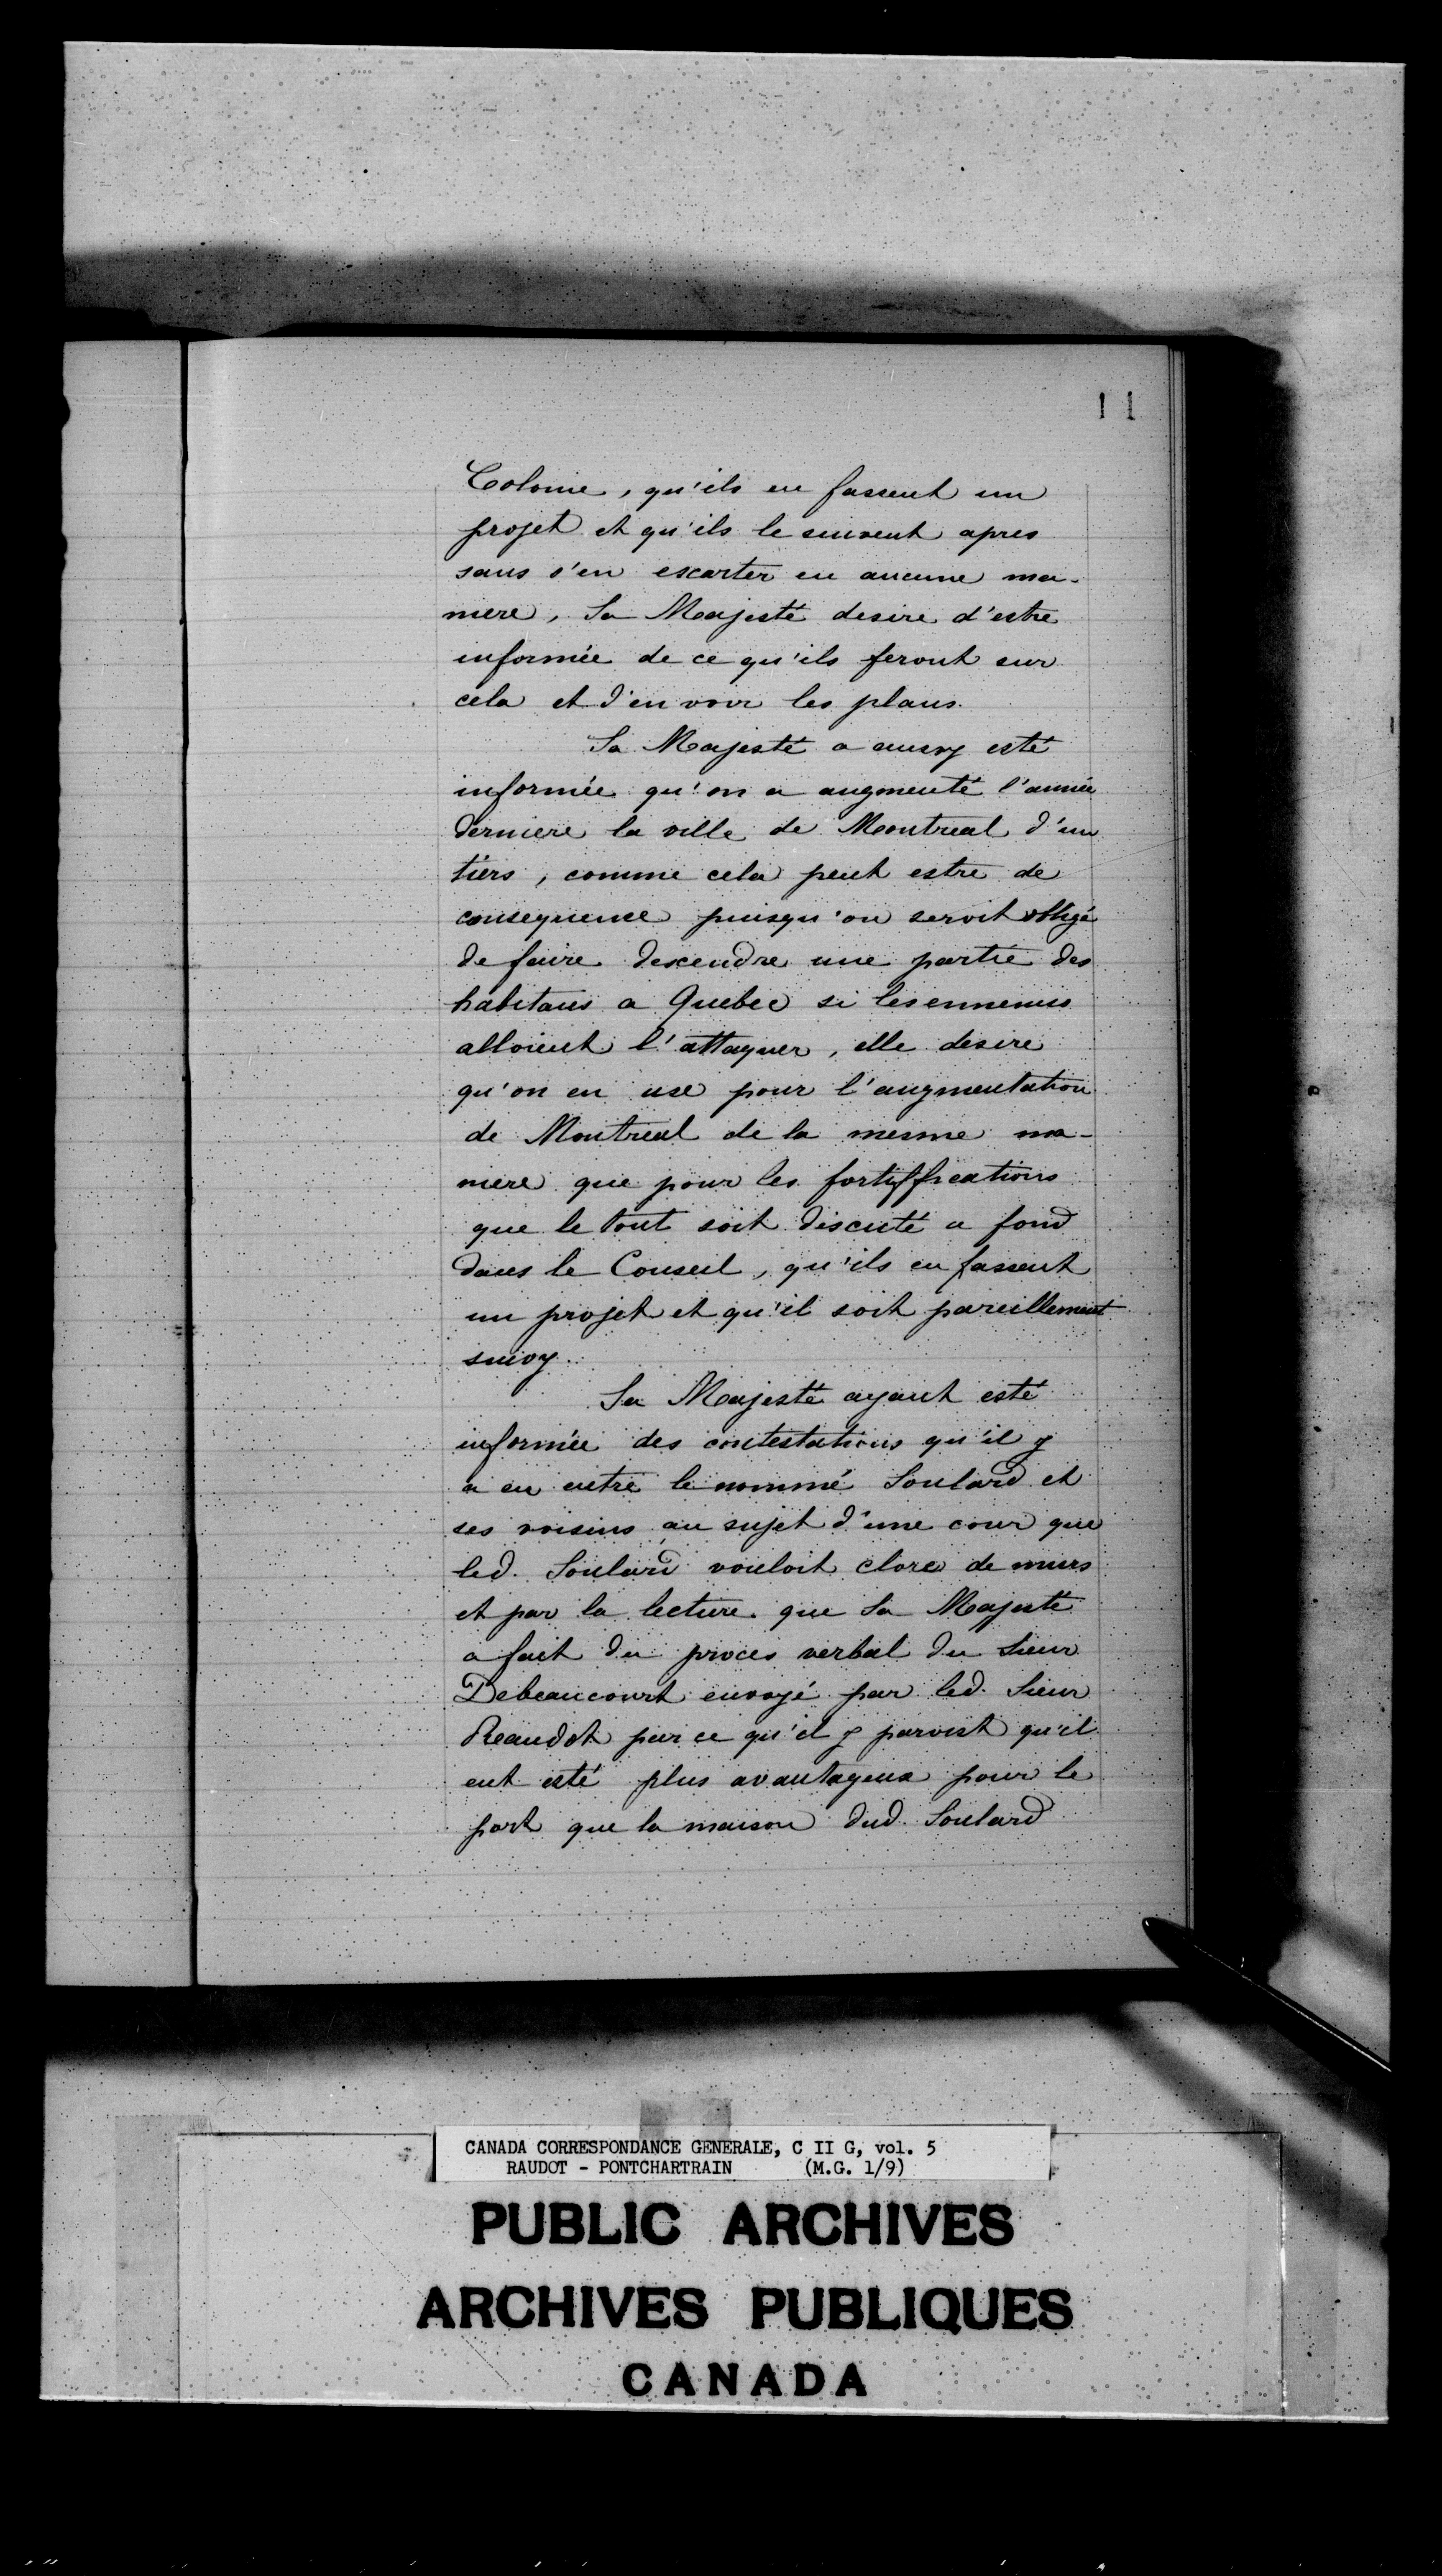 11
Colonie, qu'ils en fassent un
projet et qu'ils le suivent apres
sans s'en escarter en aucune ma-
niere, Sa Majesté desire d'estre
informée de ce qu'ils feront sur
cela et d'en voir les plans.
Sa Majesté a aussy esté
informée qu'on a augmenté l'année
derniere la ville de Montreal d'un
tiers, comme cela peut estre de
consequence puisqu'on seroit obligé
de faire descendre une partie des
habitans a Quebec si les ennemis
alloient l'attaquer, elle desire
qu'on en use pour l'augmentation
de Montreal de la mesme ma-
niere que pour les fortiffications
que le tout soit discuté a fond
dans le Conseil, qu'ils en fassent
un projet et qu'il soit pareillement
suivy.
Sa Majesté ayant esté
informée des contestations qu'il y
a eu entre le nommé Soulard et
ses voisins au sujet d'une cour que
led. Soulard vouloit clore de murs
et par la lecture que Sa Majesté
a fait du proces verbal du Sieur
Debeaucourt envoyé par led. Sieur
Reaudot par ce qu'il y paroist qu'il
eut esté plus avantageux pour le
port que la maison dud. Soulard
CANADA CORRESPONDANCE GENERALE, C II G, vol. 5
RAUDOT - PONTCHARTRAIN (M.G. 1/9)
PUBLIC ARCHIVES
ARCHIVES PUBLIQUES
CANADA